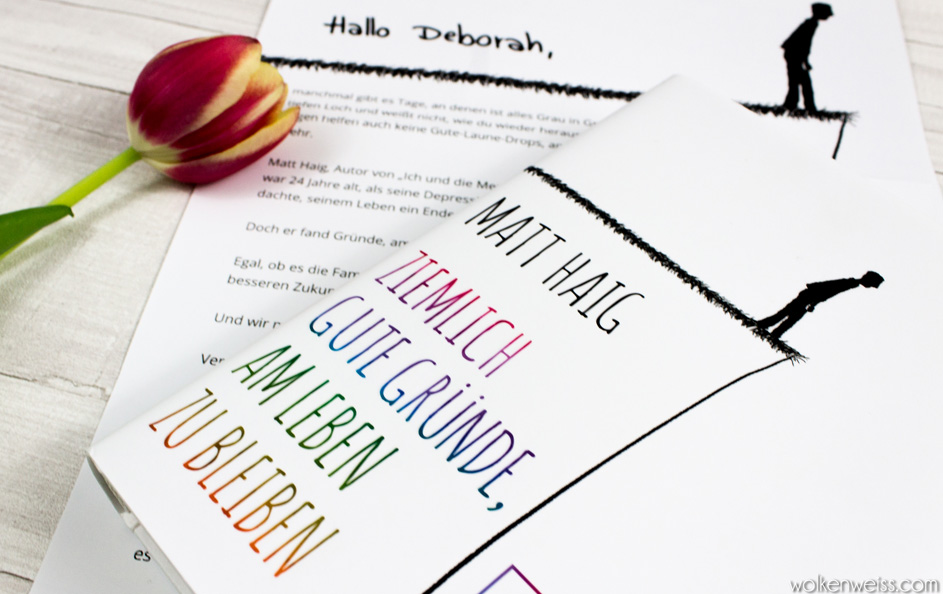 Hallo Deborah,
manchmal gibt es Tage, an denen ist alles Grau in
tiefen Loch und weißt nicht, wie du wieder
helfen auch keine Gute-Laune-Drops,
Matt Haig, Autor von „Ich und die
war 24 Jahre alt, als seine
dachte, seinem Leben ein
Doch er fand Gründe,
Egal, ob es die
besseren
Und wir
MATT HAIG
ZIEMLICH
GUTE GRÜNDE,
AM LEBEN
ZU BLEIBEN
es
wolkenweiss.com